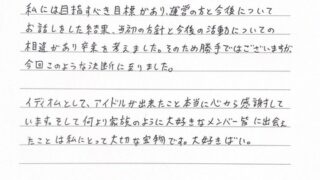 私には目指すべき目標があり、運営の方と今後について
お話しをした結果、当初の方針と今後の活動についての
相違があり卒業を考えました。そのため勝手ではございますが、
今回このような決断に至りました。
イディオムとして、アイドルが出来たこと本当に心から感謝して
います。そして何より家族のように大好きなメンバー皆に出会え
たことは私にとって大切な宝物です。大好きばい。